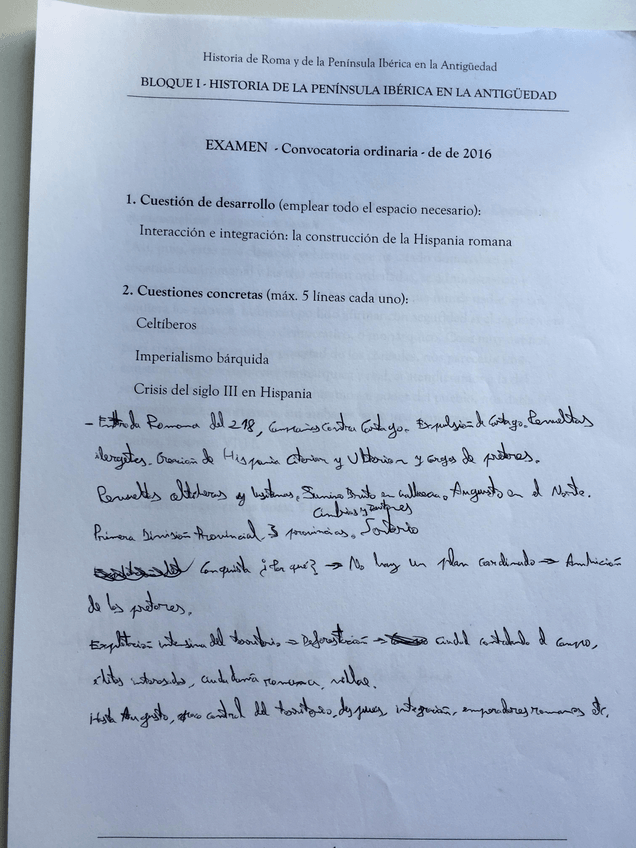 Historia de Roma y de la Península Ibérica en la Antigüedad
BLOQUE I - HISTORIA DE LA PENÍNSULA IBÉRICA EN LA ANTIGÜEDAD
EXAMEN - Convocatoria ordinaria - de de 2016
1. Cuestión de desarrollo (emplear todo el espacio necesario):
Interacción e integración: la construcción de la Hispania romana
2. Cuestiones concretas (máx. 5 líneas cada uno):
Celtíberos
Imperialismo bárquida
Crisis del siglo III en Hispania
- Entrada Romana del 218, Campañas contra Cartago. Expulsión de Cartago. Revueltas
ilergetes. Creación de Hispania Citerior y Ulterior y cargos de pretores.
Revueltas celtíberas y lusitanas. Junio Bruto en Callaecia. Augusto en el Norte.
Cimbrios y
Primera División Provincial. 3 provincias. Sertorio
Conquista ¿Por qué? → No hay un plan coordinado → Ambición
de los pretores.
Explotación intensiva del territorio = Deforestación → ciudad controlando el campo,
elites interesadas, ciudadanía romana, villae.
Hasta Augusto, control del territorio, después, integración, emperadores romanos etc.